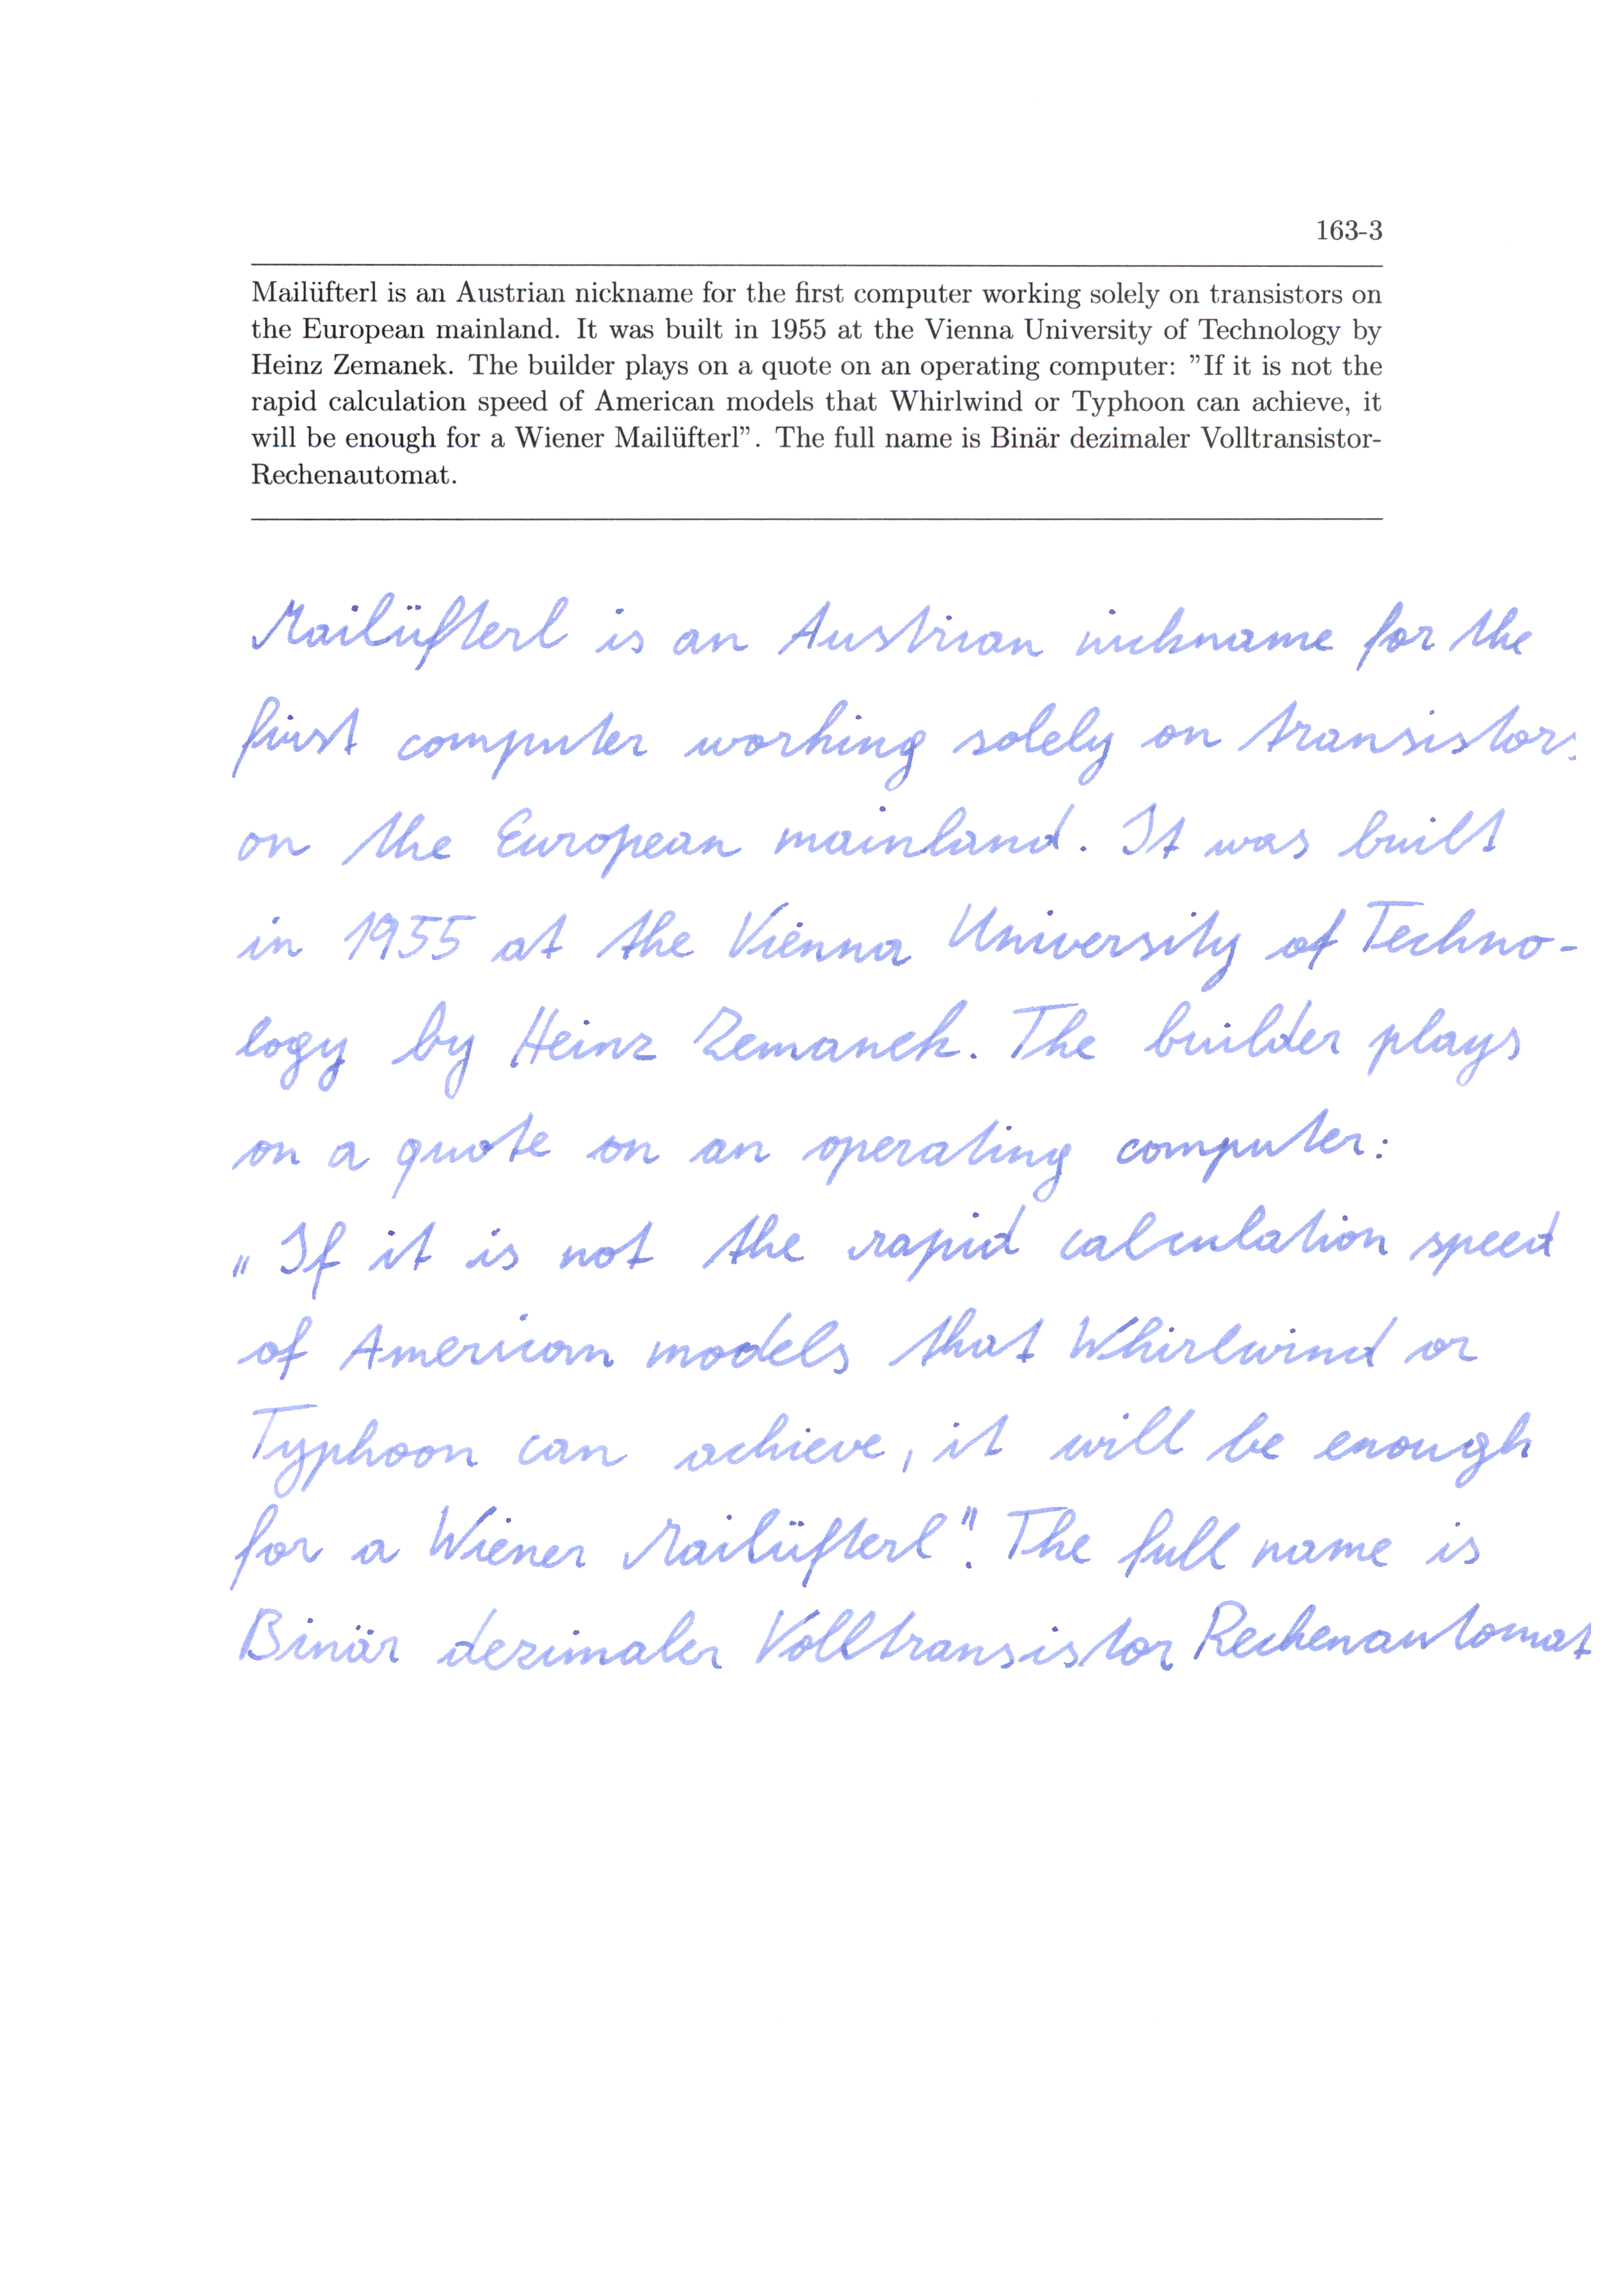 163-3
Mailüfterl is an Austrian nickname for the first computer working solely on transistors on
the European mainland. It was built in 1955 at the Vienna University of Technology by
Heinz Zemanek. The builder plays on a quote on an operating computer: ”If it is not the
rapid calculation speed of American models that Whirlwind or Typhoon can achieve, it
will be enough for a Wiener Mailüfterl”. The full name is Binär dezimaler Volltransistor-
Rechenautomat.
Mailüfterl is an Austrian nickname for the
first computer working solely on transistors
on the European mainland. It was built
in 1955 at the Vienna University of Techno-
logy by Heinz Zemanek. The builder plays
on a quote on an operating computer:
„If it is not the rapid calculation speed
of American models that Whirlwind or
Typhoon can achieve, it will be enough
for a Wiener Mailüfterl". The full name is
Binär dezimaler Volltransistor Rechenautomat